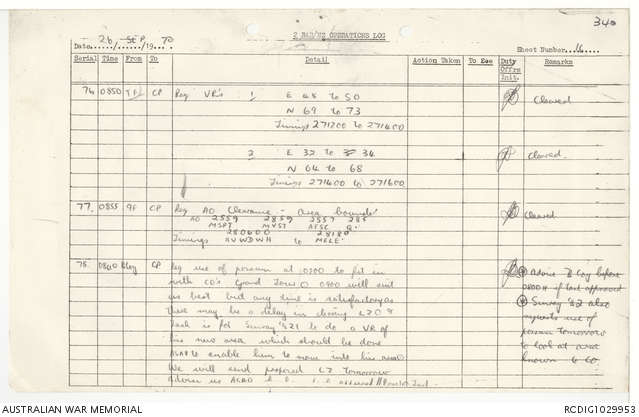 340
2 RAR/NZ OPERATIONS LOG
Date 26 / SEP /19 70
Sheet Number 16
Serial Time From To Detail Action Taken To See Duty Offrs Init. Remarks
74 0850 CP Req VR's 1 E 48 to 50 Cleared
N 69 to 73
Timings 271200 to 271600
2 E 32 to 34 Cleared.
N 64 to 68
Timings 271400 to 271600
77. 0855 9F CP Req AO Clearance - area bounded Cleared
AO 2559 2859 2557
MSPT MVST
280600 28180
Timings to MELE
78. 0840 CP Req use of possum at 0900 to fit in
with CO's Grand Tour 0900 will suit
us best but any time is satisfactory as
there may be a delay in closing LZ
Task is for Sunray 21 to do a VR of
his new area which should be done
ASAP to enable him to move into his new
We will send prepared LZ tomorrow
Advise us ASAP
Advise Coy before
0800H if task approved
Sunray 42 also
requests use of
possum tomorrow
to look at area
known to CO
AUSTRALIAN WAR MEMORIAL
RCDIG1029953